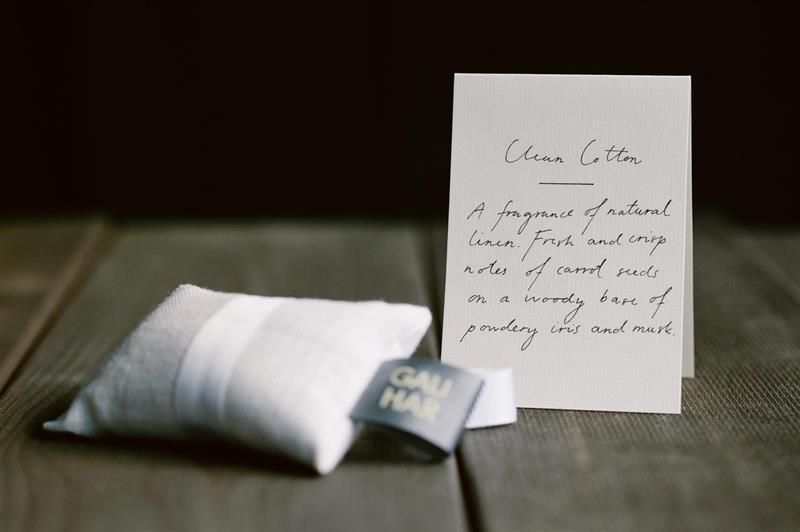 Clean Cotton
A fragrance of natural
linen. Fresh and crisp
notes of carrot seeds
on a woody base of
powdery iris and musk.
GALI
HAR